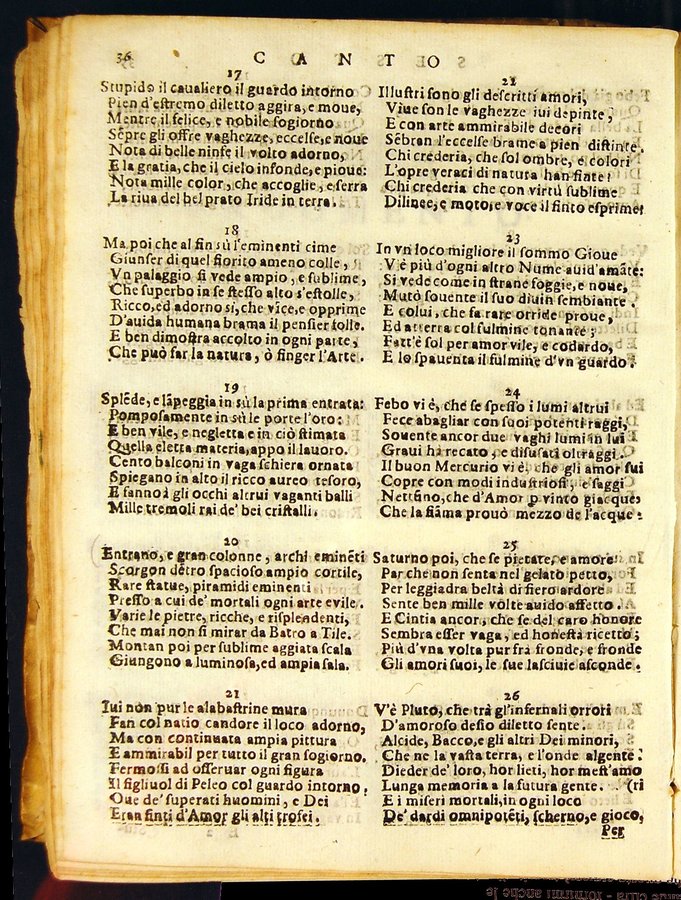 36
C A N T O
17
Stupido il caualiero il guardo intorno
Pien d'estremo diletto aggira, e moue,
Mentre il felice, e nobile sogiorno
Sẽpre gli offre vaghezze, eccelse, e noue
Nota di belle ninfe il volto adorno,
E la gratia, che il cielo infonde, e pioue:
Nota mille color, che accoglie, e serra
La riua del bel prato Iride in terra.
18
Ma poi che al fin sù l'eminenti cime
Giunser di quel fiorito ameno colle,
Vn palaggio si vede ampio, e sublime,
Che superbo in se stesso alto s'estolle,
Ricco, ed adorno si, che vĩce, e opprime
D'auida humana brama il pensier folle.
E ben dimostra accolto in ogni parte,
Che può far la natura, ò finger l'Arte.
19
Splẽde, e lãpeggia in sù la prima entrata:
Pomposamente in sù le porte l'oro:
E ben vile, e negletta e in ciò stimata
Quella eletta materia, appo il lauoro.
Cento balconi in vaga schiera ornata
Spiegano in alto il ricco aureo tesoro,
E fanno à gli occhi altrui vaganti balli
Mille tremoli rai de' bei cristalli.
20
Entrano, e gran colonne, archi eminẽti
Scorgon dẽtro spacioso ampio cortile,
Rare statue, piramidi eminenti
Presso a cui de' mortali ogni arte e vile.
Varie le pietre, ricche, e risplendenti,
Che mai non si mirar da Batro a Tile.
Montan poi per sublime aggiata scala
Giungono a luminosa, ed ampia sala.
21
Iui non pur le alabastrine mura
Fan col natio candore il loco adorno,
Ma con continuata ampia pittura
E ammirabil per tutto il gran sogiorno.
Fermossi ad osseruar ogni figura
Il figliuol di Peleo col guardo intorno.
Oue de' superati huomini, e Dei
Eran finti d'Amor gli alti trofei.
22
Illustri sono gli descritti amori,
Viue son le vaghezze iui depinte,
E con arte ammirabile decori
Sẽbran l'eccelse brame a pien distinte.
Chi crederia, che sol ombre, e colori
L'opre veraci di natura han finte?
Chi crederia che con virtù sublime
Dilinee, e moto, e voce il finto esprime?
23
In vn loco migliore il sommo Gioue
V'è più d'ogni altro Nume auid'amãte:
Si vede come in strane foggie, e noue,
Mutò souente il suo diuin sembiante.
E colui, che fa rare orride proue,
Ed atterra col fulmine tonante;
Fatt'è sol per amor vile, e codardo,
E lo spauenta il fulmine d'vn guardo.
24
Febo vi è, che se spesso i lumi altrui
Fece abagliar con suoi potenti raggi,
Souente ancor due vaghi lumi in lui
Graui hà recato, e disusati oltraggi.
Il buon Mercurio vi è, che gli amor sui
Copre con modi industriosi, e saggi
Nettũno, che d'Amor p vinto giacque,
Che la fiãma prouò mezzo de l'acque.
25
Saturno poi, che se pietate, e amore
Par che non senta nel gelato petto,
Per leggiadra beltà di fiero ardore
Sente ben mille volte auido affetto.
E Cintia ancor, che se del caro honore
Sembra esser vaga, ed honestà ricetto;
Più d'vna volta pur frà fronde, e fronde
Gli amori suoi, le sue lasciuie asconde.
26
V'è Pluto, che trà gl'infernali orrori
D'amoroso desio diletto sente.
Alcide, Bacco, e gli altri Dei minori,
Che ne la vasta terra, e l'onde algente
Dieder de' loro, hor lieti, hor mest'amo
Lunga memoria a la futura gente. (ri
E i miseri mortali, in ogni loco
De' dardi omnipotẽti, scherno, e gioco,
Per